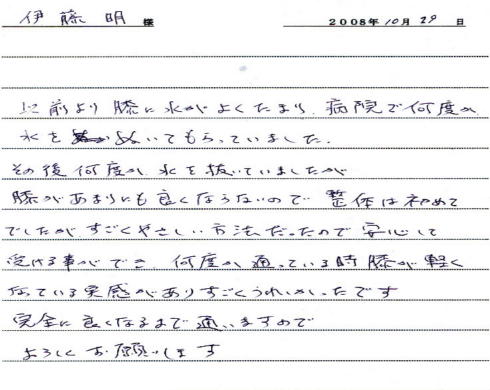 伊藤明 様 2008年10月29日
以前より膝に水がよくたまり、病院で何度か
水をぬいてもらっていました。
その後何度か水を抜いていましたが
膝があまりにも良くならないので 整体は初めて
でしたが、すごくやさしい方法だったので安心して
受ける事ができ、何度か通っている時膝が軽く
なっている実感がありすごくうれしかったです
完全に良くなるまで通いますので
よろしくお願いします